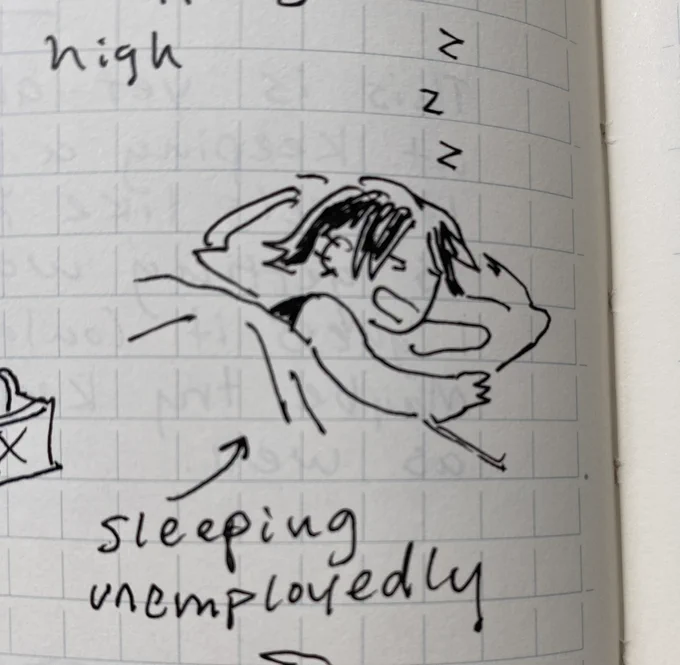 high
z
z
z
sleeping
unemployedly
X